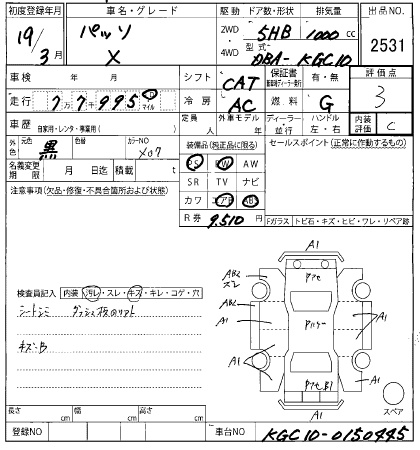 初度登録年月 車名・グレード 駆動 ドア数・形状 排気量 出品NO.
19/3月 パッソ X 2WD 4WD 5HB 1000cc 2531
型式 DBA-KGC10
車検 年 月 シフト CAT 保証書 有・無 評価点 3
走行 77995 km マイル 冷房 AC 燃料 G
車歴 自家用・レンタ・事業用( ) 定員 人 外車モデル 年 ディーラー・並行 ハンドル 左・右 内装評価 C
外色 元色 黒 色替 カラーNO X07 装備品(純正品に限る) セールスポイント(正常に作動するもの)
名義変更期限 月 日迄 積載 t PS PW AW
注意事項(欠品・修復・不具合箇所および状態) SR TV ナビ
カワ エアB ABS
R券 9,510円 Fガラス トビ石・キズ・ヒビ・ワレ・リペア跡
A1
AB2
スレ
AB2
A1
A1
A1
A1
A1
スペア
検査員記入 内装 汚レ・スレ・キズ・キレ・コゲ・穴
シートシミ
キズ・B
長さ cm 幅 cm 高さ cm
登録NO 車台NO KGC10-0150445